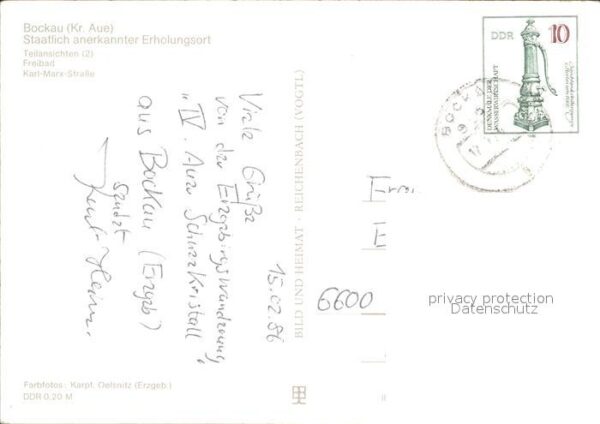 Bockau (Kr. Aue)
Staatlich anerkannter Erholungsort
Teilansichten (2)
Freibad
Karl-Marx-Straße
15.02.86
Viele Grüße
von der Erzgebirgswanderung
"IV. Auer Schneekristall"
aus Bockau (Erzgb)
sendet
Farbfotos: Karpf, Oelsnitz (Erzgeb.)
DDR 0,20 M
BILD UND HEIMAT · REICHENBACH (VOGTL.)
DDR
10
DENKMALE DER
WASSERWIRTSCHAFT
BOCKAU
6600
privacy protection
Datenschutz